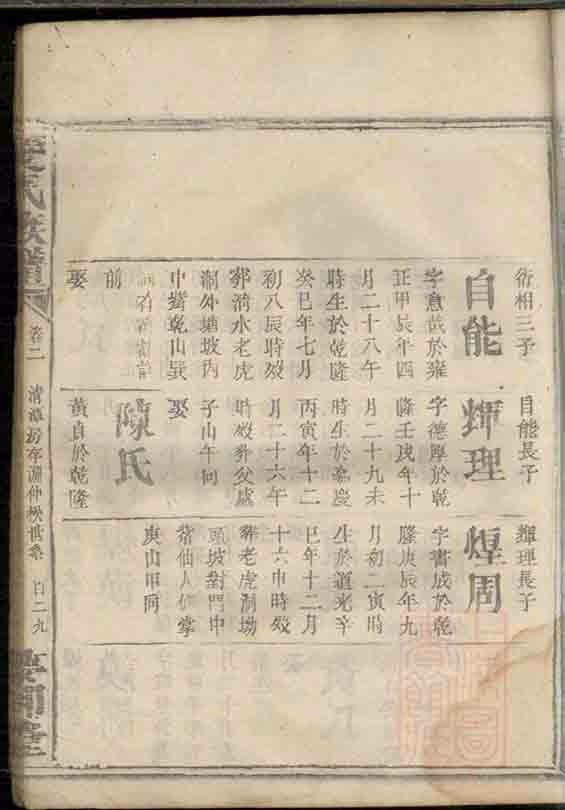 衍相三子
自能
字意哉於雍
正甲辰年四
月二十八午
時生於乾隆
癸巳年七月
初八辰時歿
葬清水老虎
洞外塘坡內
中嘴乾山巽
前
娶
自能長子
輝理
字德厚於乾
隆壬戌年十
月二十九未
時生於嘉慶
丙寅年十二
月二十六午
時歿葬父處
子山午向
娶
陳氏
黃貞於乾隆
輝理長子
煌周
字書成於乾
隆庚辰年九
月初二寅時
生於道光辛
巳年十二月
十六申時歿
葬老虎洞坳
頭坡對門中
嘴仙人仰掌
庚山甲向
氏族譜
卷二
清潭房存淵仲
世系
百二九